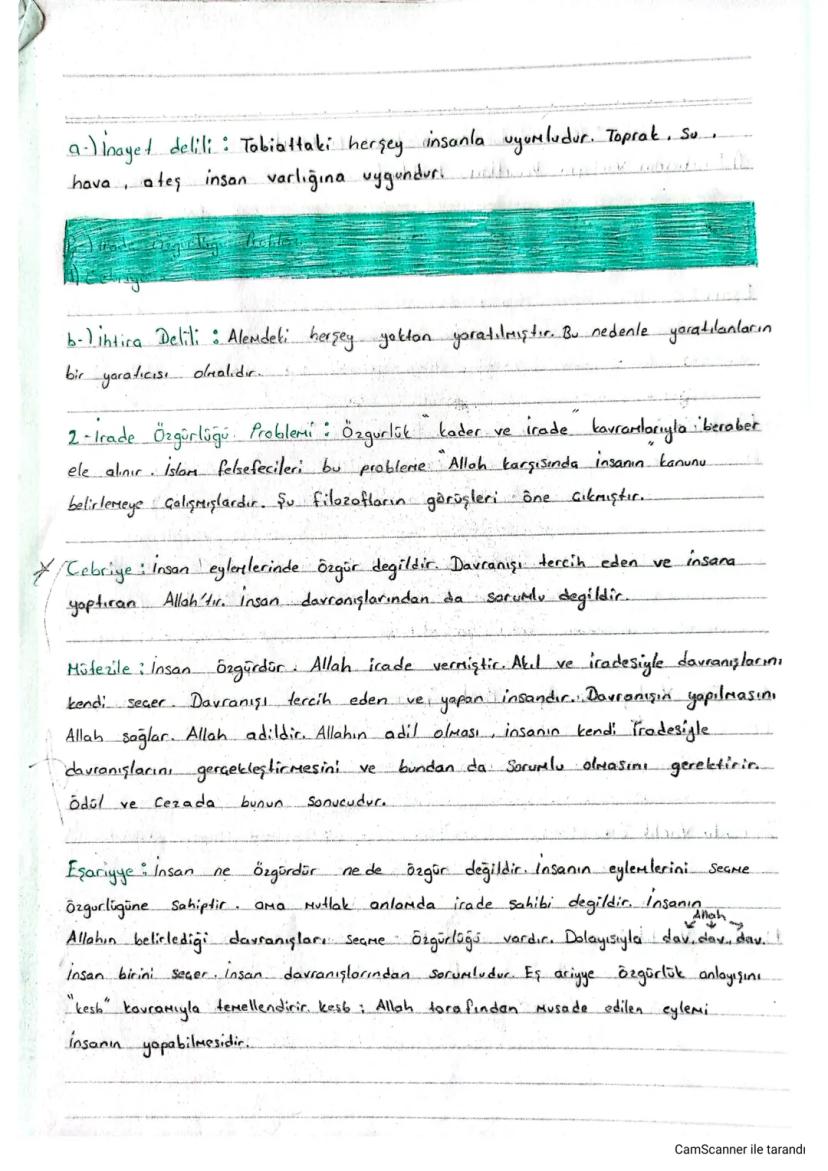 a-) İnayet delili : Tabiattaki herşey insanla uyumludur. Toprak, su,
hava, ateş insan varlığına uygundur.
b-) ihtira Delili : Alemdeki herşey yoktan yaratılmıştır. Bu nedenle yaratılanların
bir yaratıcısı olmalıdır.
2-İrade Özgürlüğü Problemi : Özgurlük "kader ve irade" kavramlarıyla beraber
ele alınır. İslam felsefecileri bu probleme "Allah karşısında insanın" kanunu
belirlemeye çalışmışlardır. Şu filozofların görüşleri öne çıkmıştır.
Cebriye : İnsan eylemlerinde özgür degildir. Davranışı tercih eden ve insana
yaptıran Allah'tır. İnsan davranışlarından da sorumlu degildir.
Mütezile : İnsan özgürdür. Allah irade vermiştir. Akıl ve iradesiyle davranışlarını
kendi seçer. Davranışı tercih eden ve yapan insandır. Davranışın yapılmasını
Allah sağlar. Allah adildir. Allahın adil olması, insanın kendi iradesiyle
davranışlarını gerçekleştirmesini ve bundan da sorumlu olmasını gerektirir.
Ödül ve Cezada bunun sonucudur.
Eşariyye : İnsan ne özgürdür ne de özgür değildir. İnsanın eylemlerini seçme
özgurlügüne sahiptir. ama mutlak anlamda irade sahibi degildir. İnsanın
Allah
Allahın belirlediği davranışları seçme özgürlüğü vardır. Dolayısıyla dav. dav. dav.
insan birini seçer. İnsan davranışlarından sorumludur. Eş ariyye özgürlük anlayışını
"kesb" kavramıyla temellendirir. kesb : Allah tarafından musade edilen eylemi
insanın yapabilmesidir.
CamScanner ile tarandı